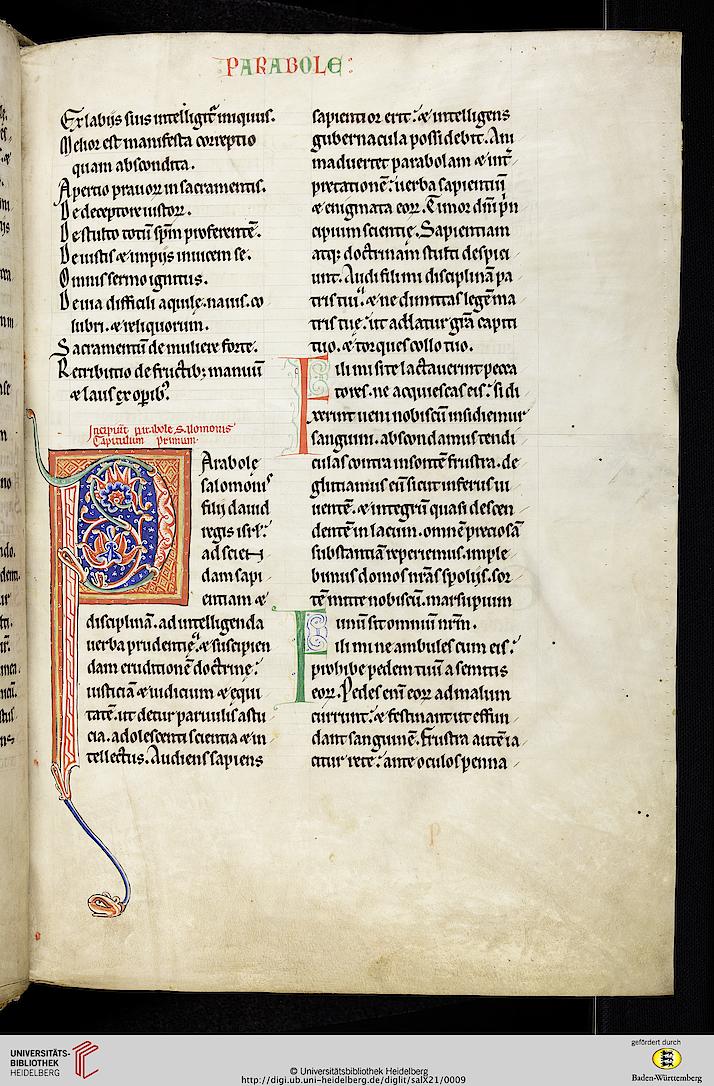 PARABOLE
Ex labijs suis intelligit᷑ iniquus.
Melior est manifesta correptio
quam abscondita.
Apertio prauoꝝ in sacramentis.
De deceptore iustoꝝ.
De stulto totū sp̄m proferentē.
De iustis ⁊ impijs inuicem se.
Omnis sermo ignitus.
De uia difficili aquile. nauis. co
lubri. ⁊ reliquorum.
Sacramentū de muliere forte.
Retributio de fructib; manuū
⁊ laus ex opib᷒.
Incipiūt parabole Salomonis
Capitulum primum.
PArabole
salomonis
filij dauid
regis isrl̄.
ad sciēn
dam sapi
entiam ⁊
disciplinā. ad intelligenda
uerba prudentię. ⁊ suscipien
dam eruditionē doctrinę.
iusticiā ⁊ iudicium ⁊ equi
tatē. ut detur paruulis astu
cia. adolescenti scientia ⁊ in
tellectus. Audiens sapiens
sapientior erit. ⁊ intelligens
gubernacula possidebit. Ani
maduertet parabolam ⁊ int̄
pretationē. uerba sapientiū
⁊ enigmata eoꝝ. Timor dn̄i p̄n
cipium scientię. Sapientiam
atq; doctrinam stulti despici
unt. Audi fili mi disciplinā pa
tris tui. ⁊ ne dimittas legē ma
tris tuę. ut addatur gr̄a capiti
tuo. ⁊ torques collo tuo.
Fili mi si te lactauerint pecca
tores. ne acquiescas eis. si di
xerint ueni nobiscū insidiemur
sanguini. abscondamus tendi
culas contra insontē frustra. de
glutiamus eū sicut infernus ui
uentē. ⁊ integrū quasi descen
dentē in lacum. omnē preciosā
substantiā reperiemus. imple
bimus domos nr̄as spolijs. sor
tē mitte nobiscū. marsupium
unū sit omniū nr̄m.
Fili mi ne ambules cum eis.
prohibe pedem tuū a semitis
eoꝝ. Pedes eni᷑ eoꝝ ad malum
currunt. ⁊ festinant ut effun
dant sanguinē. Frustra autē ia
citur rete. ante oculos penna
UNIVERSITÄTS-
BIBLIOTHEK
HEIDELBERG
© Universitätsbibliothek Heidelberg
http://digi.ub.uni-heidelberg.de/diglit/salX21/0009
gefördert durch
Baden-Württemberg